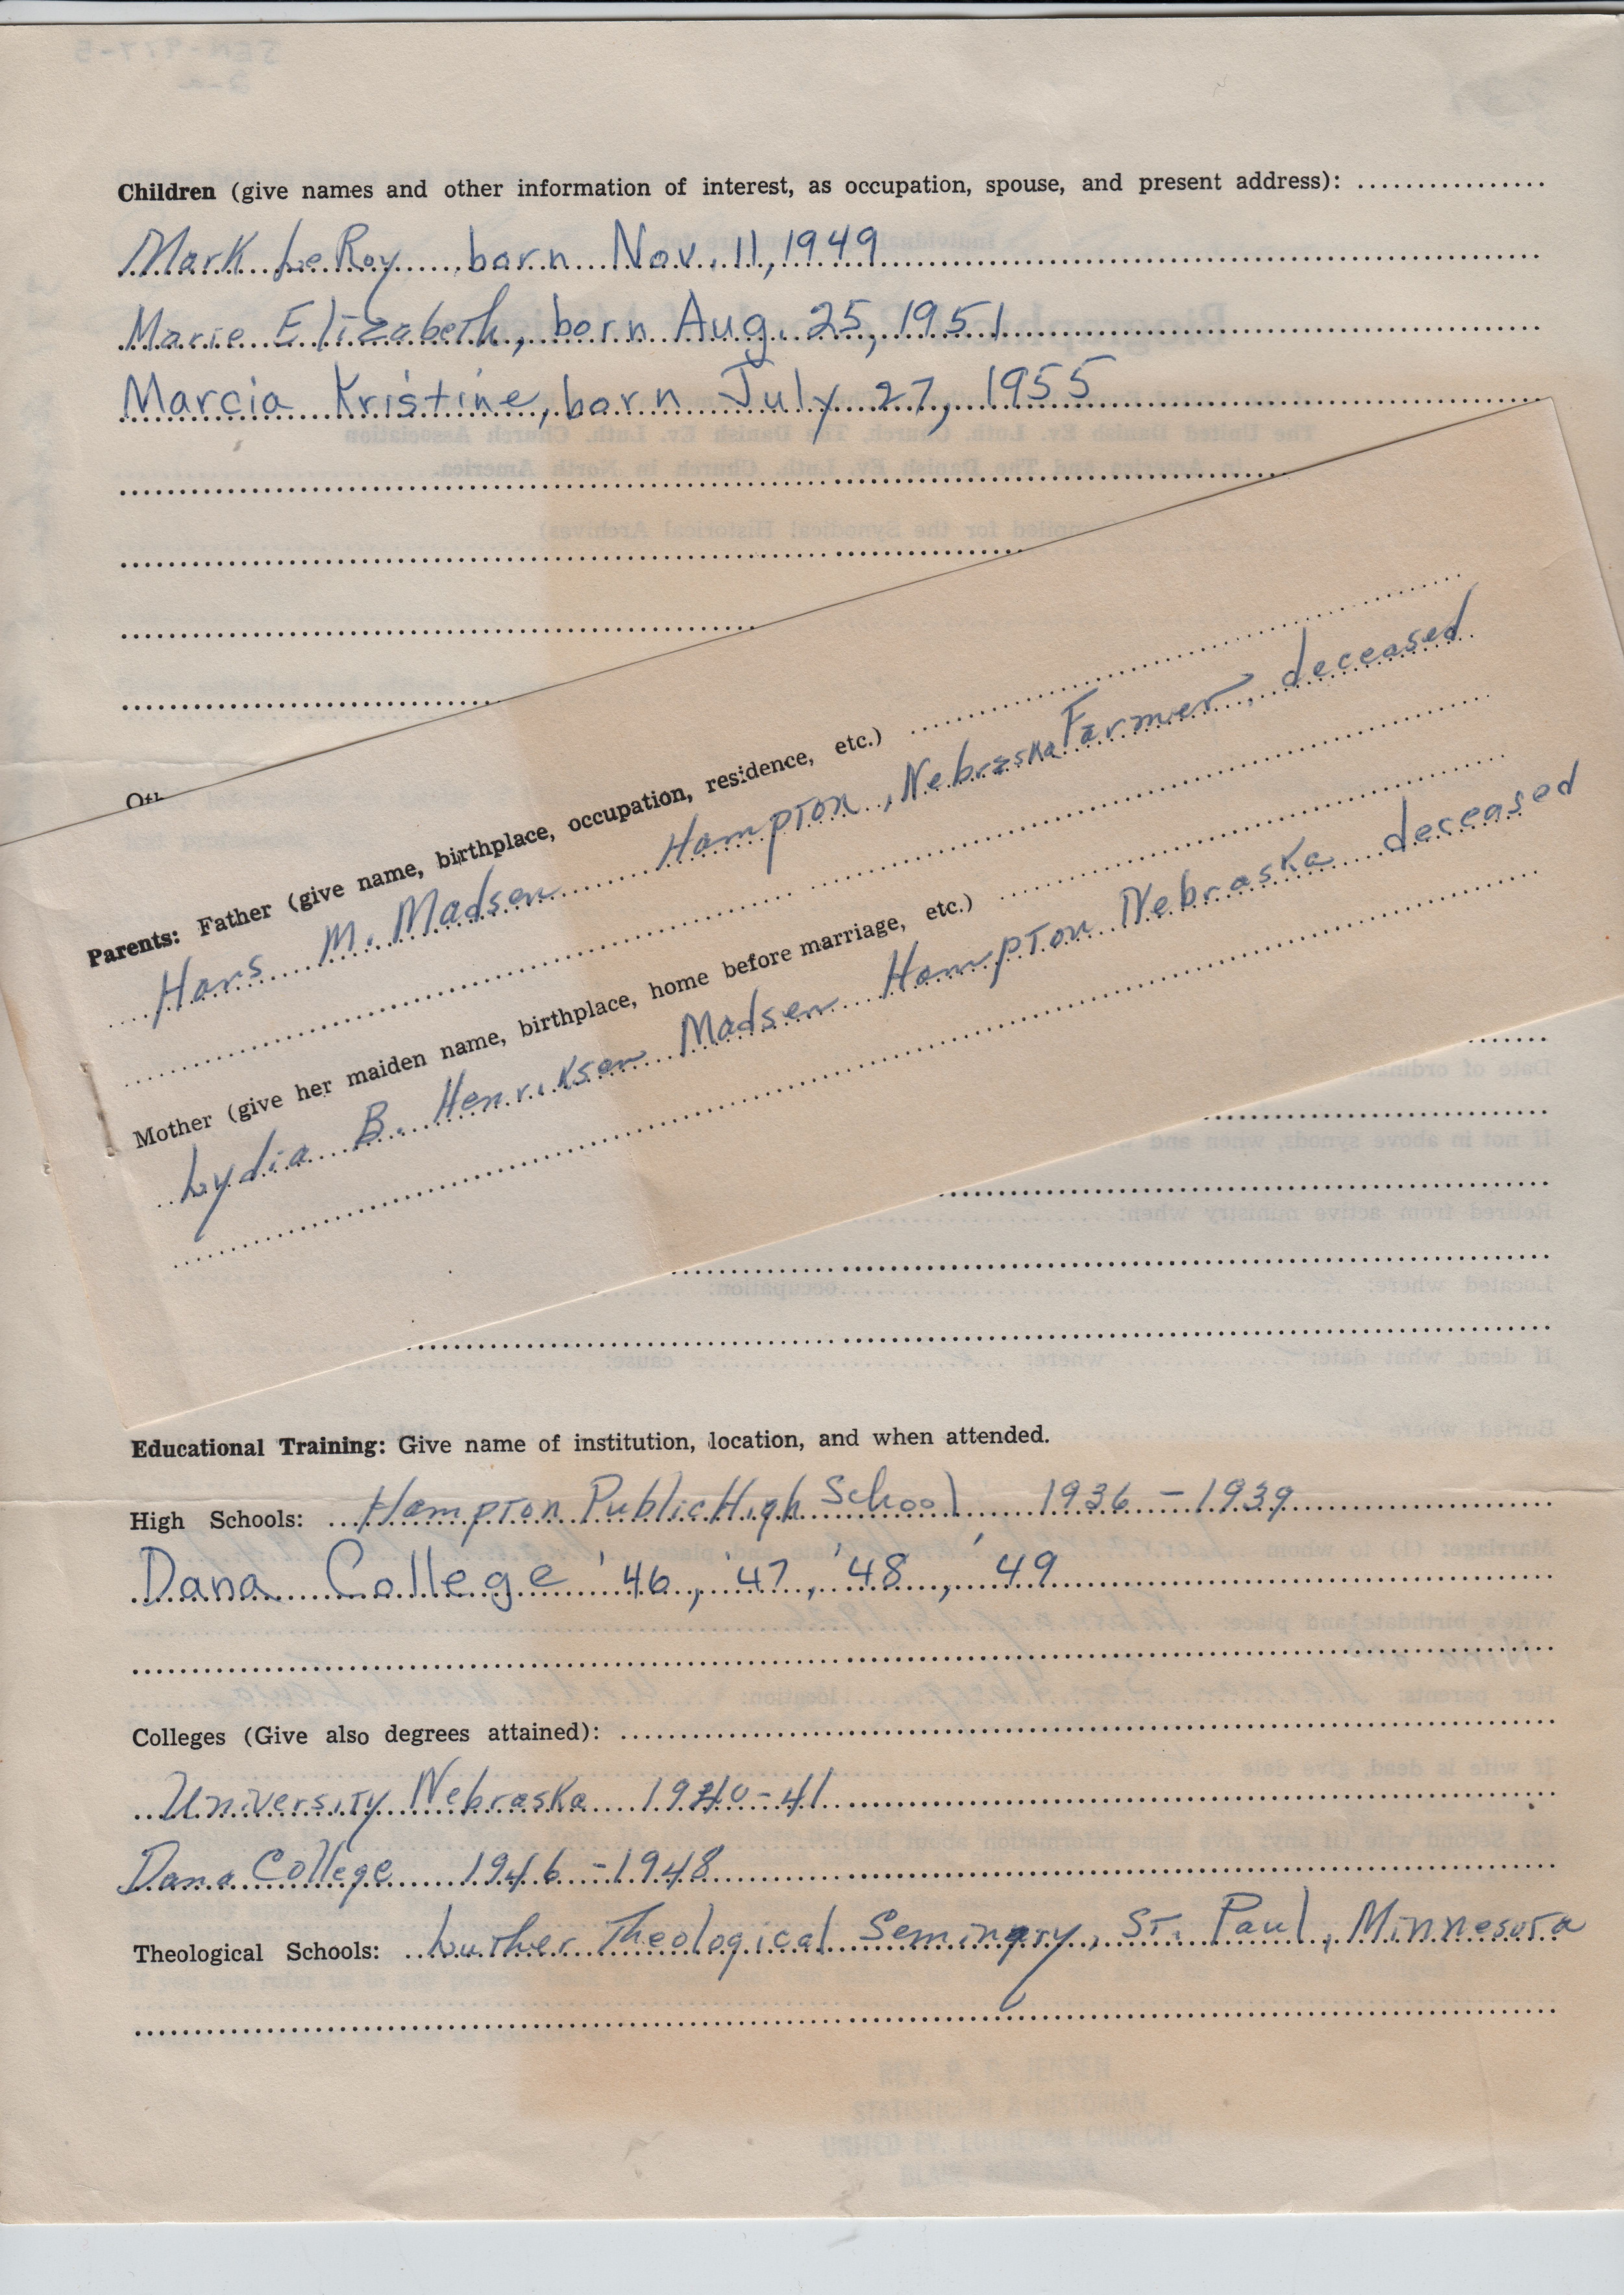 Children (give names and other information of interest, as occupation, spouse, and present address):
Mark LeRoy born Nov. 11, 1949
Marie Elizabeth, born Aug. 25, 1951
Marcia Kristine, born July 27, 1955
Parents: Father (give name, birthplace, occupation, residence, etc.)
Hans M. Madsen Hampton, Nebraska Farmer, deceased
Mother (give her maiden name, birthplace, home before marriage, etc.)
Lydia B. Henriksen Madsen Hampton Nebraska deceased
Educational Training: Give name of institution, location, and when attended.
High Schools: Hampton Public High School 1936 - 1939
Dana College '46, '47, '48, '49
Colleges (Give also degrees attained):
University Nebraska 1940-41
Dana College 1946-1948
Theological Schools: Luther Theological Seminary, St. Paul, Minnesota